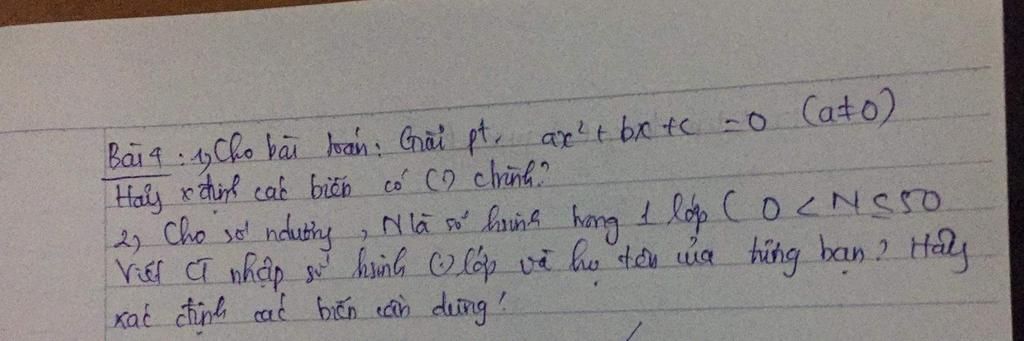 Bài 4 : 1, Cho bài toán: Giải pt, ax² + bx + c = 0 (a≠0)
Hãy xđịnh các biến có (.) chính?
2, Cho số ndương, N là số hsinh trong 1 lớp ( 0 < N ≤ 50
Viết CT nhập số hsinh (.) lớp và họ tên của từng bạn? Hãy
xác định các biến cần dùng!